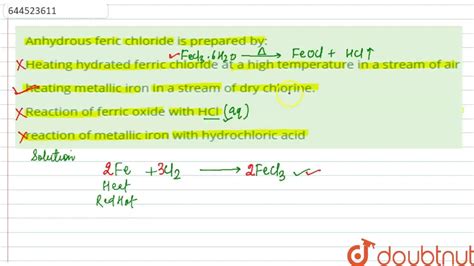 644523611
Anhydrous feric chloride is prepared by:
FeCl3.6H2O —Δ→ FeOCl + HCl↑
Heating hydrated ferric chloride at a high temperature in a stream of air
Heating metallic iron in a stream of dry chlorine.
Reaction of ferric oxide with HCl (aq)
reaction of metallic iron with hydrochloric acid
Solution
2Fe + 3Cl2 → 2FeCl3
Heet
Red Hot
doubtnut